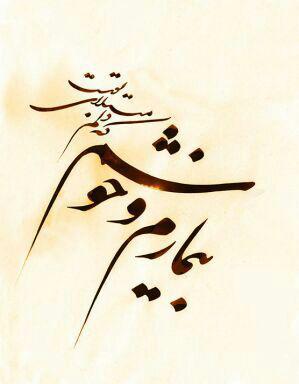 بیمارم و خوشم
دلم مبتلای توست